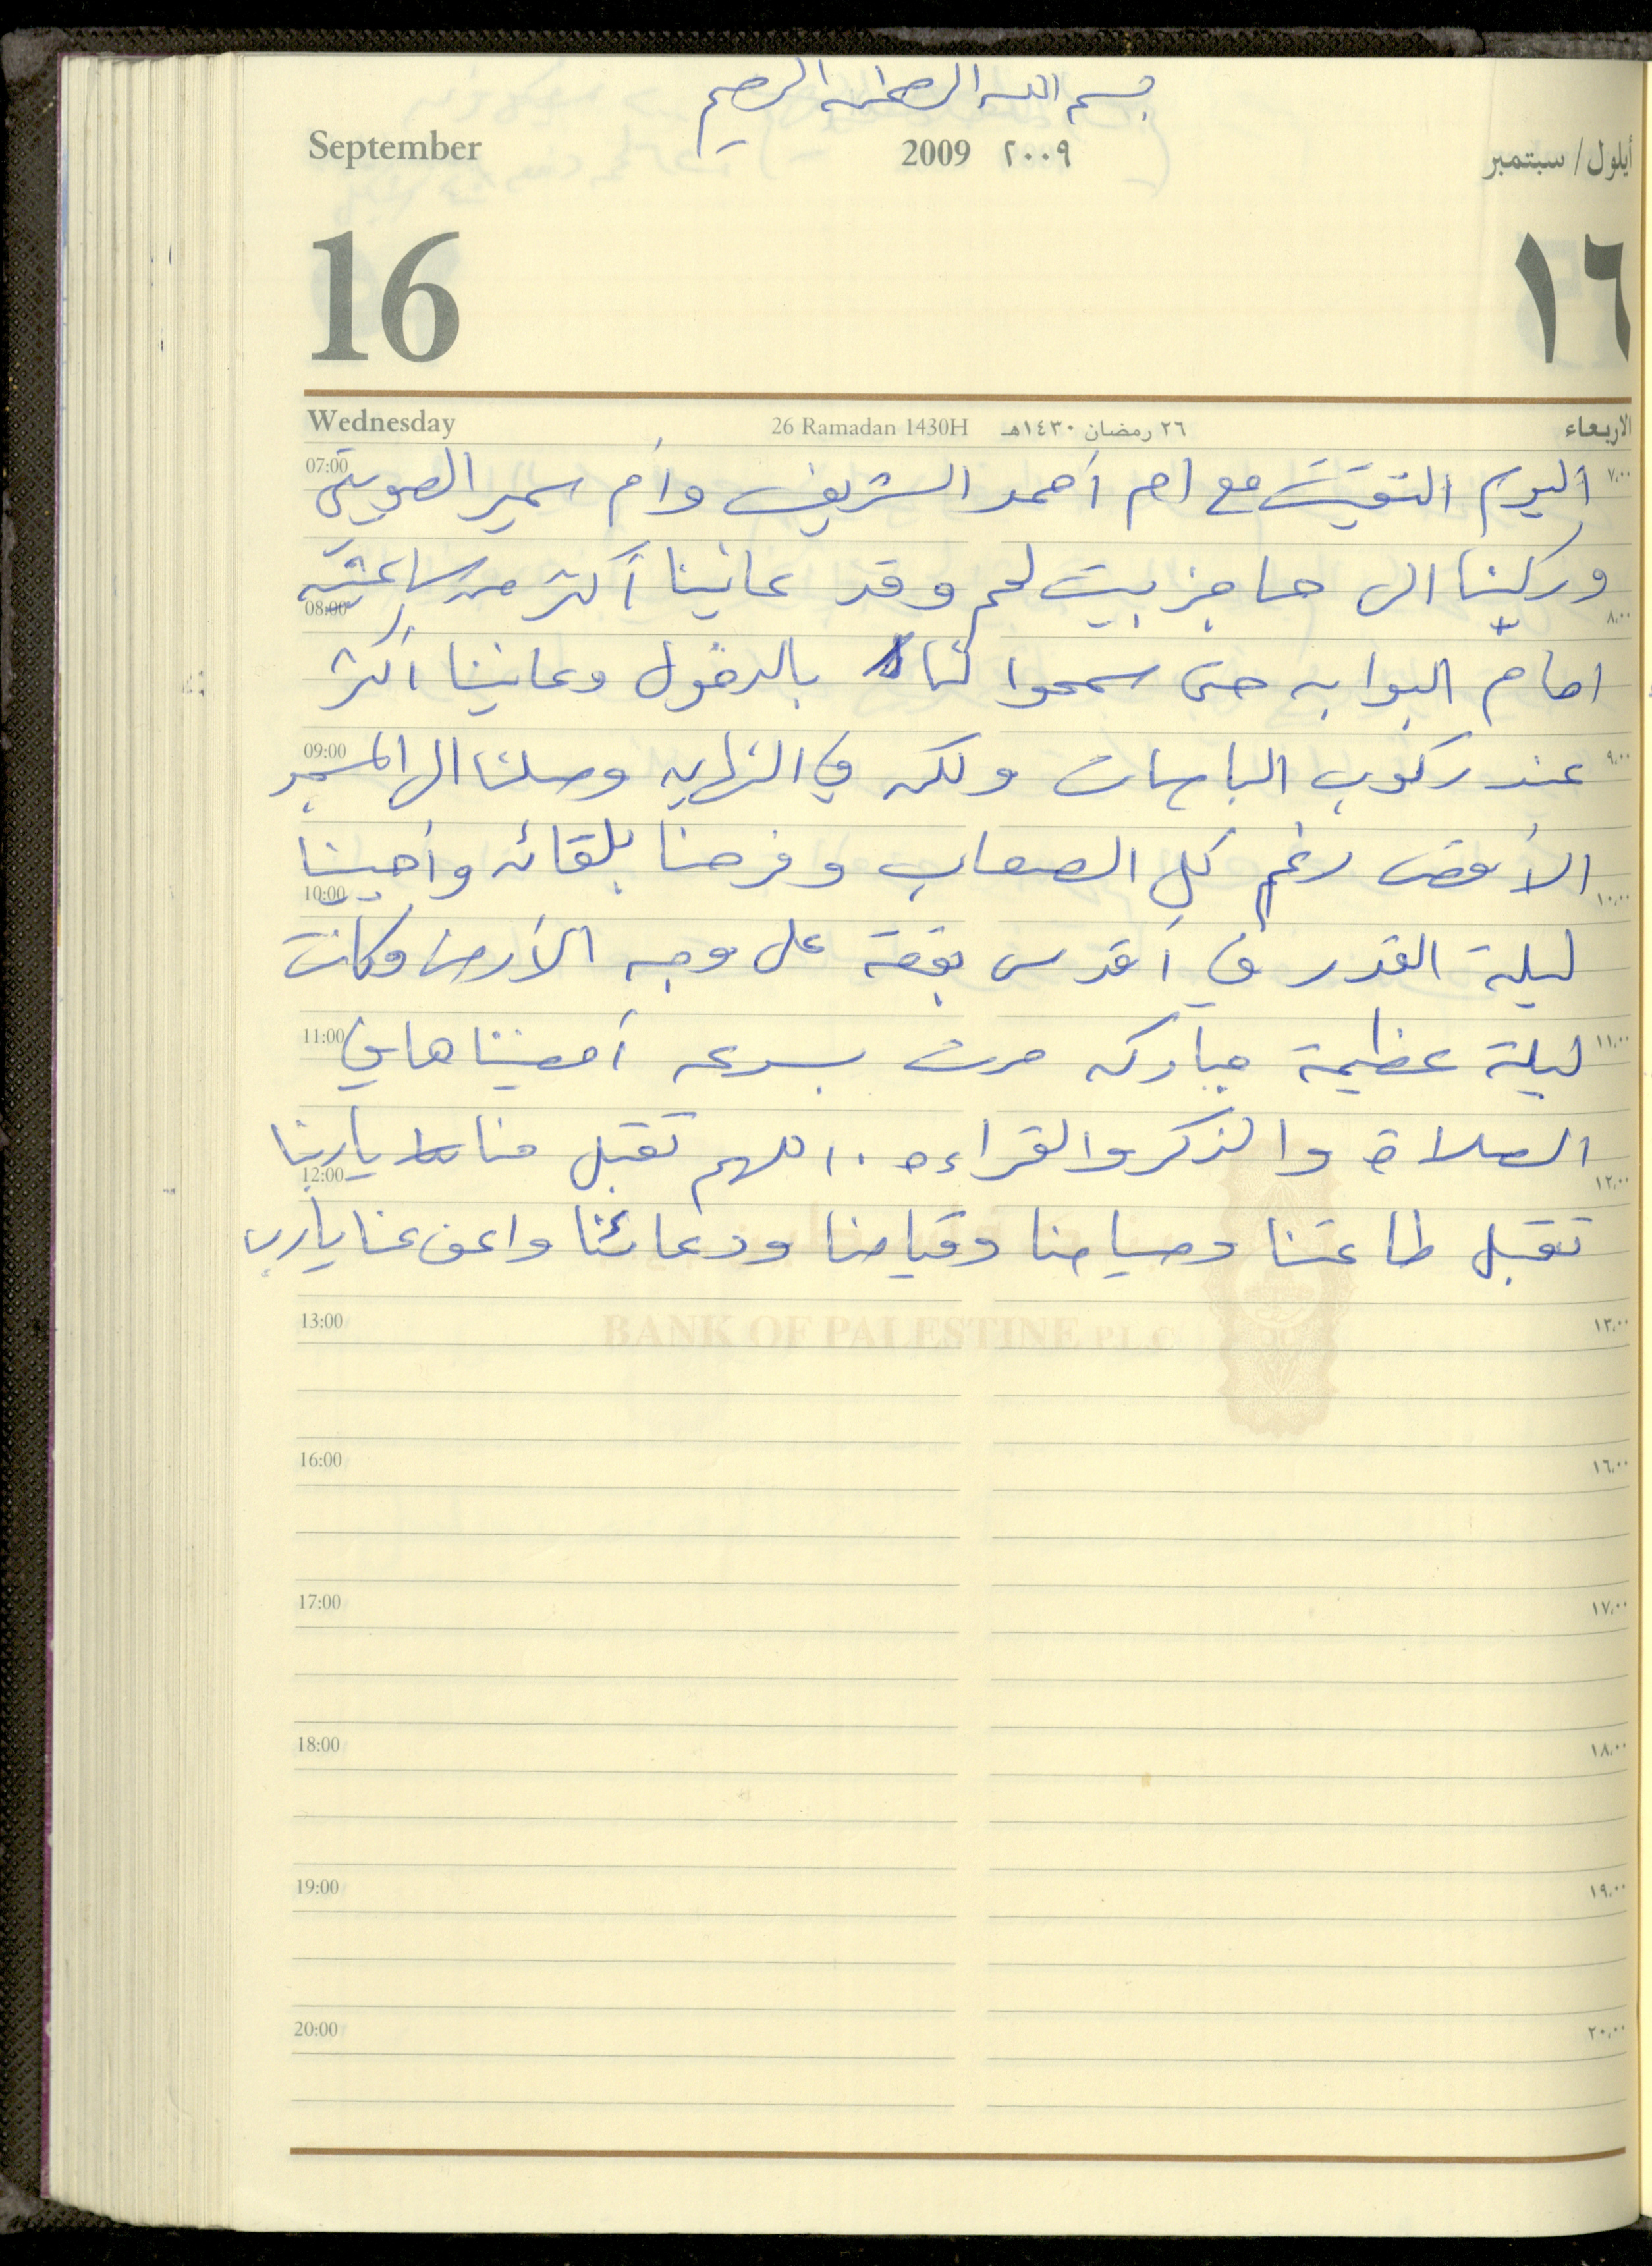 بسم الله الرحمن الرحيم
September 2009 ٢٠٠٩ أيلول / سبتمبر
16 ١٦
Wednesday 26 Ramadan 1430H ٢٦ رمضان ١٤٣٠هـ الاربعاء
07:00 ٧,٠٠
اليوم التقيت مع ام أحمد الشريف وأم سمير الصويتي
وركبنا الى حاجز بيت لحم وقد عانينا أكثر من ساعتين
08:00 ٨,٠٠
امام البوابه حتى سمحوا لنا بالدخول وعانينا اكثر
09:00 ٩,٠٠
عند ركوب الباصات ولكن في النهايه وصلنا الى المسجد
الأقصى رغم كل الصعاب وفرحنا بلقائه وأحيينا
10:00 ١٠,٠٠
ليلة القدر في أقدس بقعة على وجه الأرض وكانت
11:00 ١١,٠٠
ليلة عظيمة مباركه مرت بسرعه أمضيناها في
الصلاة والذكر والقراءه . اللهم تقبل منا يا ربنا
12:00 ١٢,٠٠
تقبل طاعتنا وصيامنا وقيامنا ودعائنا واعف عنا يارب
13:00 ١٣,٠٠
BANK OF PALESTINE PLC
16:00 ١٦,٠٠
17:00 ١٧,٠٠
18:00 ١٨,٠٠
19:00 ١٩,٠٠
20:00 ٢٠,٠٠